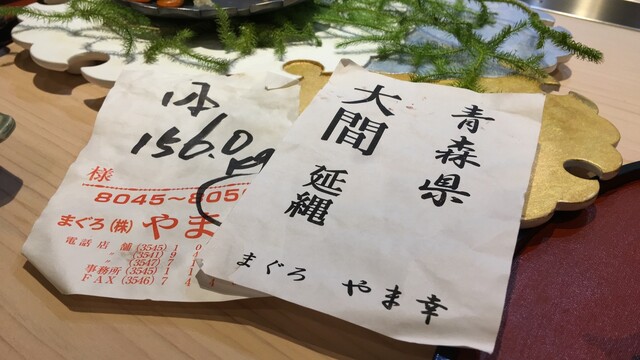 1本
156.0
様
8045～805
まぐろ(株)やま
電話店舗(3545)1 0
〃 (3541)9 4
〃 (3547)7 1
事務所(3545)1 1
FAX(3546)7 4
青森県
大間
延縄
まぐろ やま幸